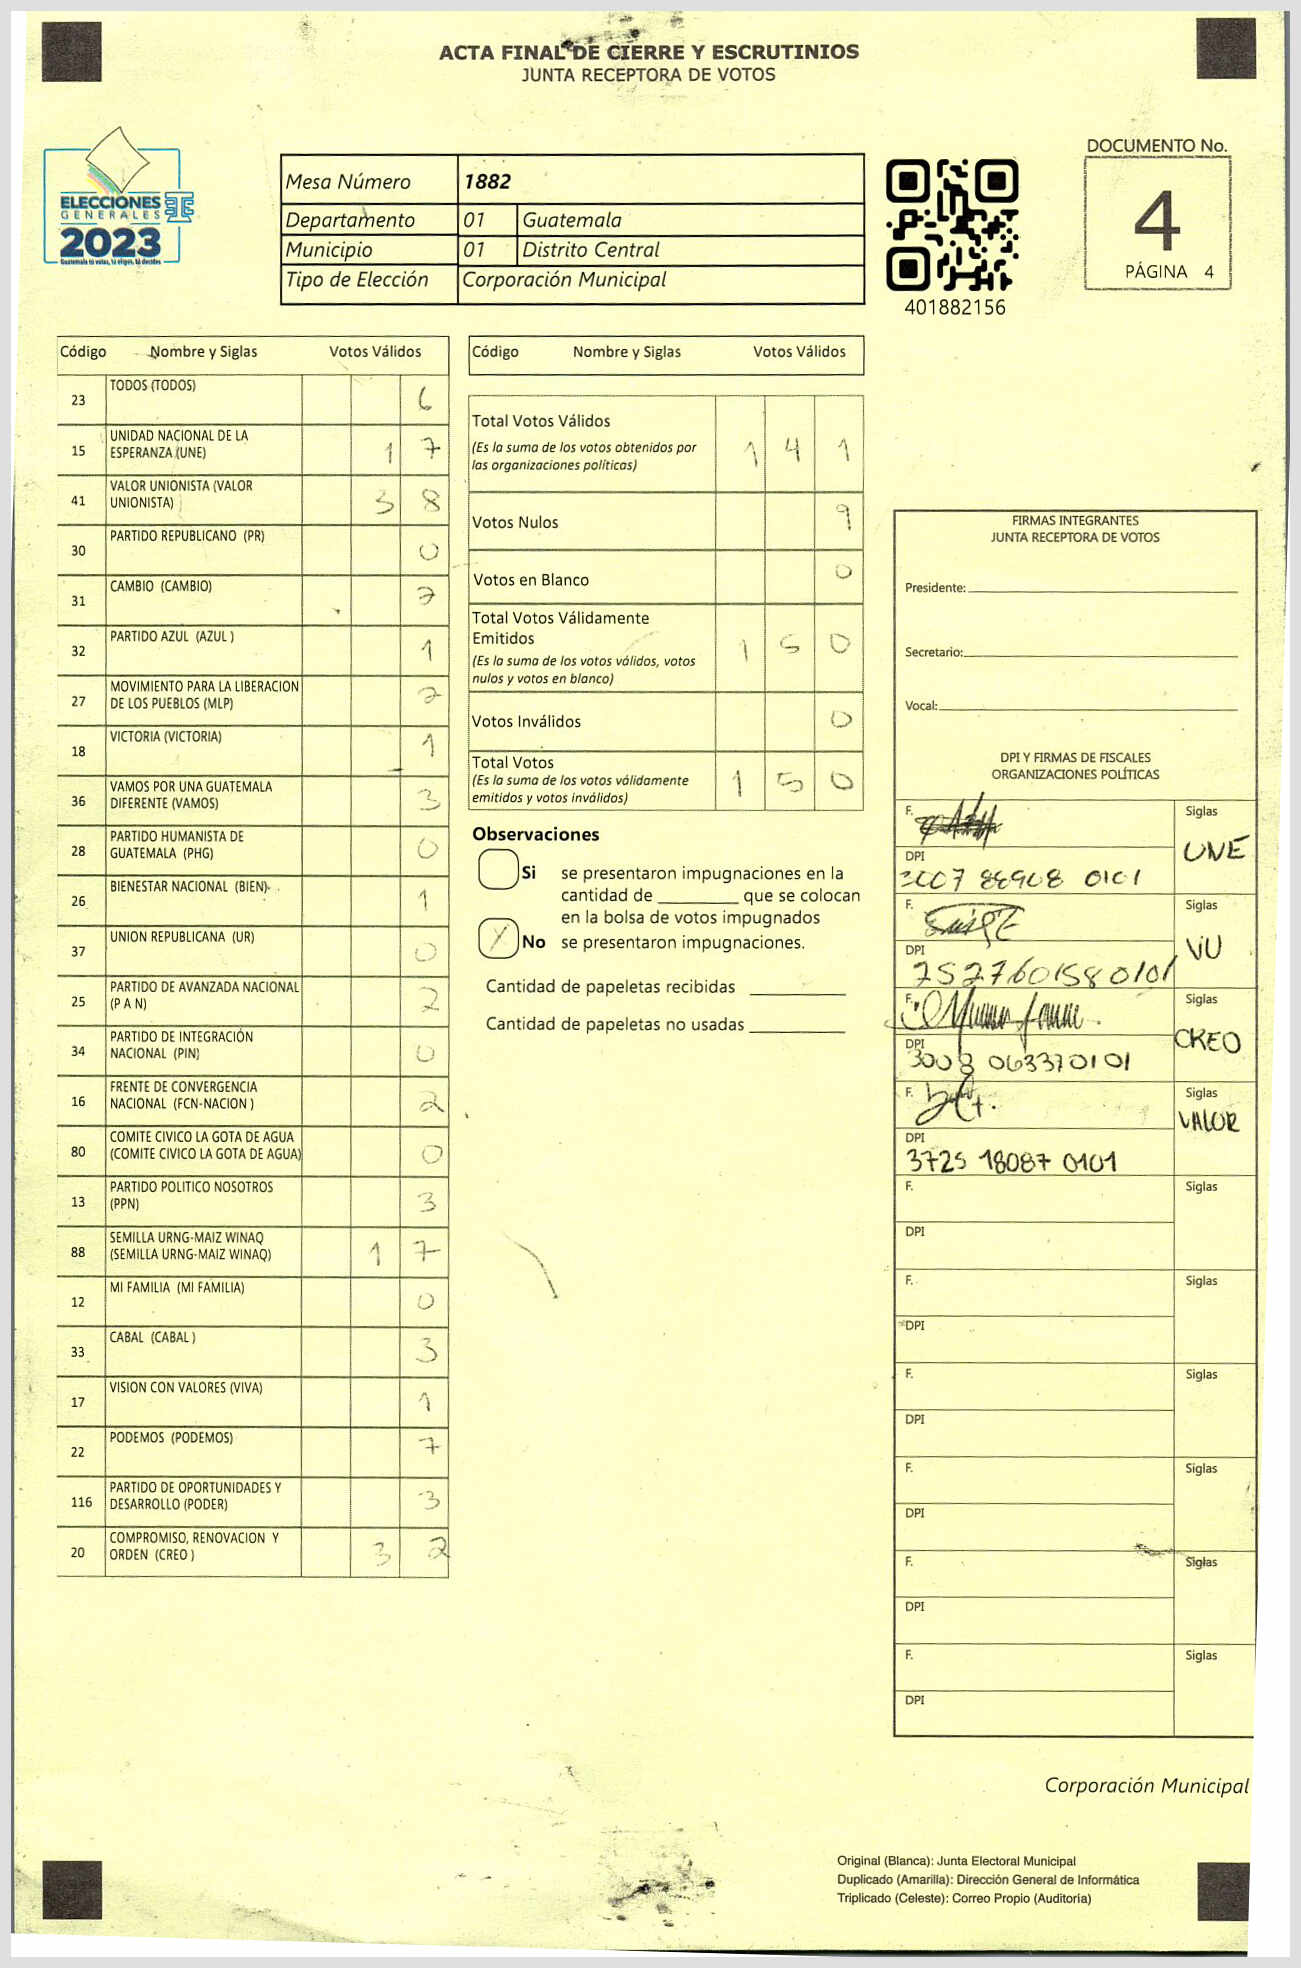 ACTA FINAL DE CIERRE Y ESCRUTINIOS
JUNTA RECEPTORA DE VOTOS
ELECCIONES
GENERALES
2023
Guatemala tú votas, tú eliges, tú decides
Mesa Número 1882
Departamento 01 Guatemala
Municipio 01 Distrito Central
Tipo de Elección Corporación Municipal
401882156
DOCUMENTO No.
4
PÁGINA 4
Código Nombre y Siglas Votos Válidos
23 TODOS (TODOS) 6
15 UNIDAD NACIONAL DE LA
ESPERANZA (UNE) 1 7
41 VALOR UNIONISTA (VALOR
UNIONISTA) 3 8
30 PARTIDO REPUBLICANO (PR) 0
31 CAMBIO (CAMBIO)
32 PARTIDO AZUL (AZUL ) 1
27 MOVIMIENTO PARA LA LIBERACION
DE LOS PUEBLOS (MLP) 2
18 VICTORIA (VICTORIA) 1
36 VAMOS POR UNA GUATEMALA
DIFERENTE (VAMOS) 3
28 PARTIDO HUMANISTA DE
GUATEMALA (PHG) 0
26 BIENESTAR NACIONAL (BIEN) 1
37 UNION REPUBLICANA (UR) 0
25 PARTIDO DE AVANZADA NACIONAL
(P A N) 2
34 PARTIDO DE INTEGRACIÓN
NACIONAL (PIN) 0
16 FRENTE DE CONVERGENCIA
NACIONAL (FCN-NACION ) 2
80 COMITE CIVICO LA GOTA DE AGUA
(COMITE CIVICO LA GOTA DE AGUA) 0
13 PARTIDO POLITICO NOSOTROS
(PPN) 3
88 SEMILLA URNG-MAIZ WINAQ
(SEMILLA URNG-MAIZ WINAQ) 1 7
12 MI FAMILIA (MI FAMILIA) 0
33 CABAL (CABAL ) 3
17 VISION CON VALORES (VIVA) 1
22 PODEMOS (PODEMOS) 7
116 PARTIDO DE OPORTUNIDADES Y
DESARROLLO (PODER) 3
20 COMPROMISO, RENOVACION Y
ORDEN (CREO ) 3 2
Código Nombre y Siglas Votos Válidos
Total Votos Válidos
(Es la suma de los votos obtenidos por
las organizaciones políticas) 1 4 1
Votos Nulos 9
Votos en Blanco 0
Total Votos Válidamente
Emitidos
(Es la suma de los votos válidos, votos
nulos y votos en blanco) 1 5 0
Votos Inválidos 0
Total Votos
(Es la suma de los votos válidamente
emitidos y votos inválidos) 1 5 0
Observaciones
Si se presentaron impugnaciones en la
cantidad de ________ que se colocan
en la bolsa de votos impugnados
No se presentaron impugnaciones.
Cantidad de papeletas recibidas
Cantidad de papeletas no usadas
FIRMAS INTEGRANTES
JUNTA RECEPTORA DE VOTOS
Presidente:
Secretario:
Vocal:
DPI Y FIRMAS DE FISCALES
ORGANIZACIONES POLÍTICAS
F. Siglas
UNE
DPI
0101
F. Siglas
VU
DPI
7527601580101
F. Siglas
CREO
DPI
3008 063370101
F. Siglas
VALOR
DPI
3725 18087 0101
F. Siglas
DPI
F. Siglas
DPI
F. Siglas
DPI
F. Siglas
DPI
F. Siglas
DPI
F. Siglas
DPI
Corporación Municipal
Original (Blanca): Junta Electoral Municipal
Duplicado (Amarilla): Dirección General de Informática
Triplicado (Celeste): Correo Propio (Auditoría)